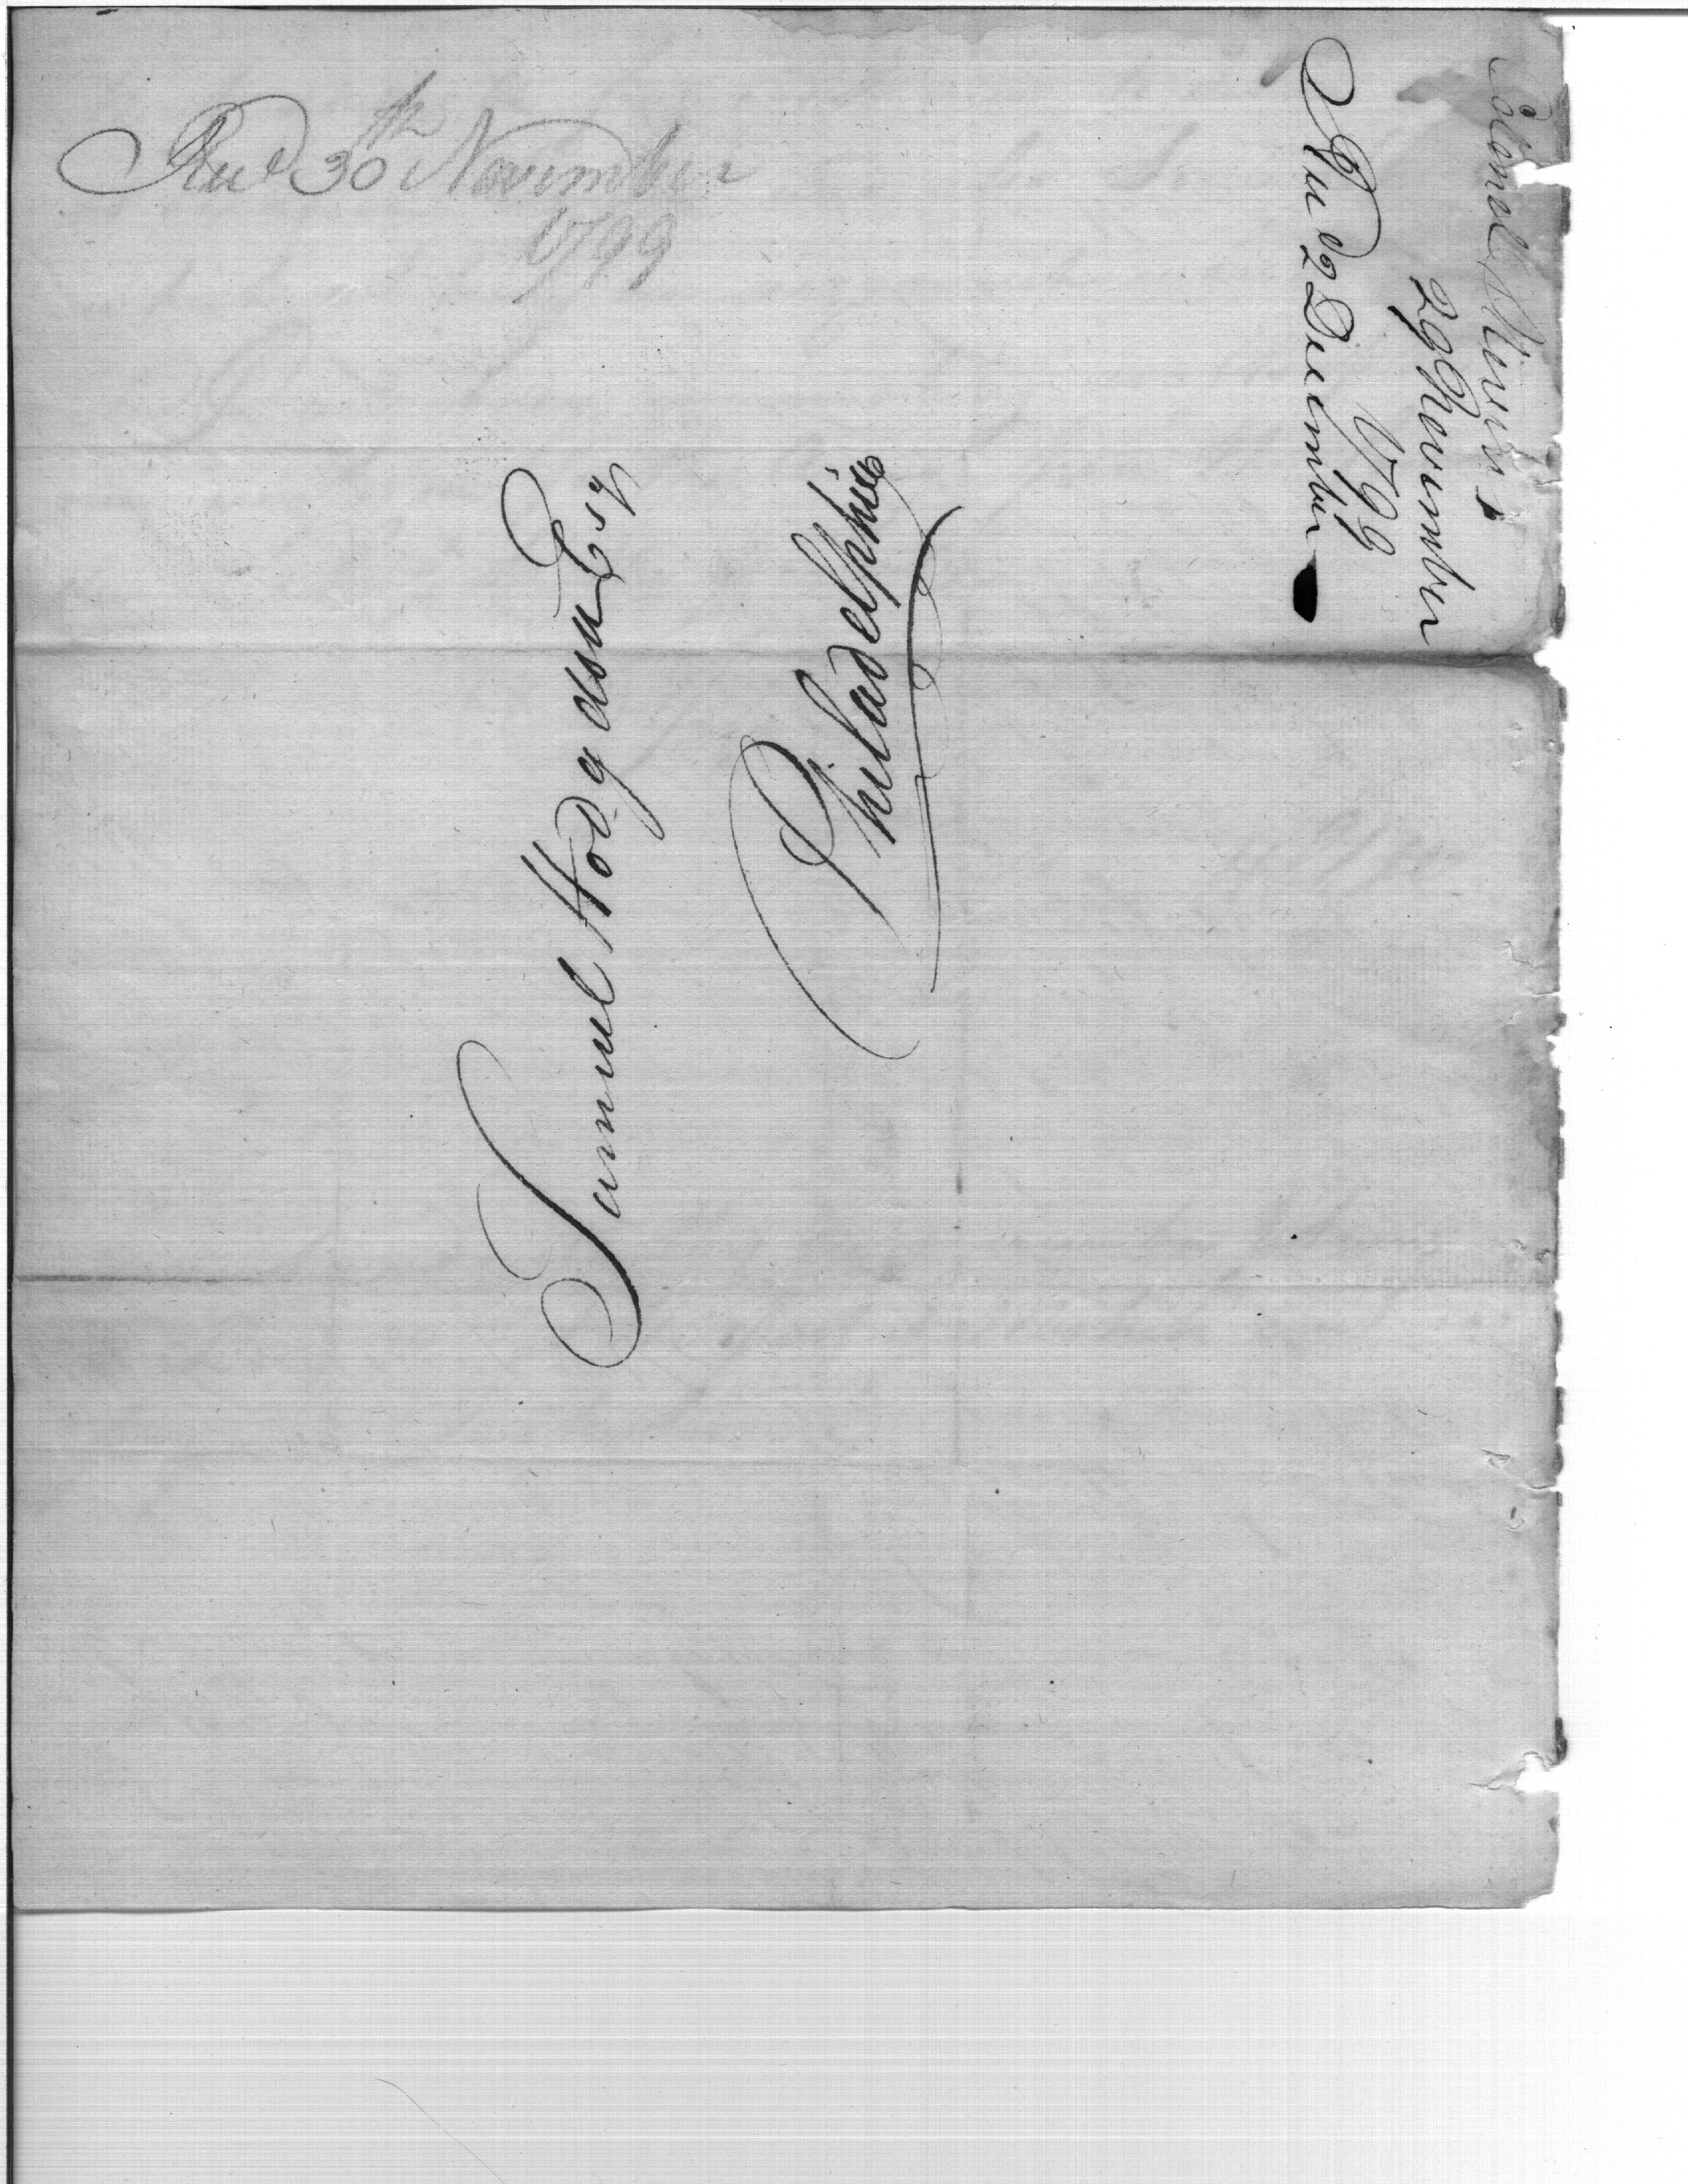 Rec'd 30th November
1799
Samuel Hodgdson Esq
Philadelphia
Colonel Stevens
29 November
1799
Rec'd 2 December